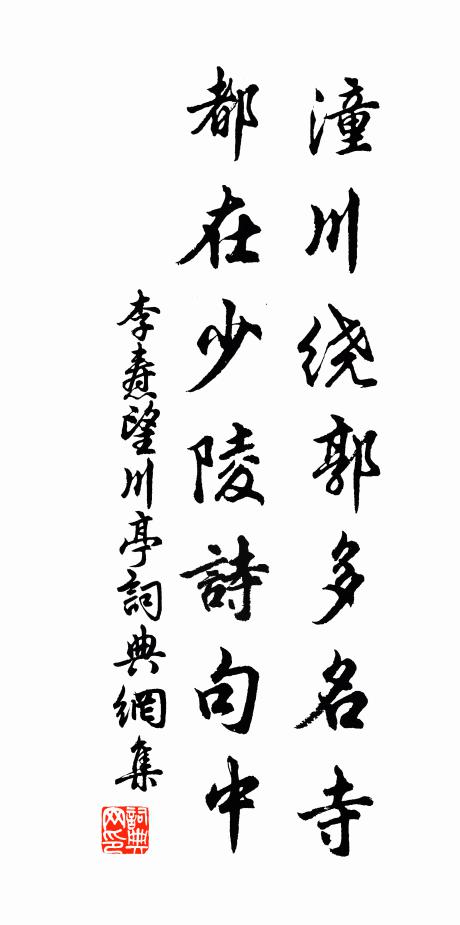 潼川绕郭多名寺
都在少陵詩句中
李焘望川亭詞典網集
詞典网印